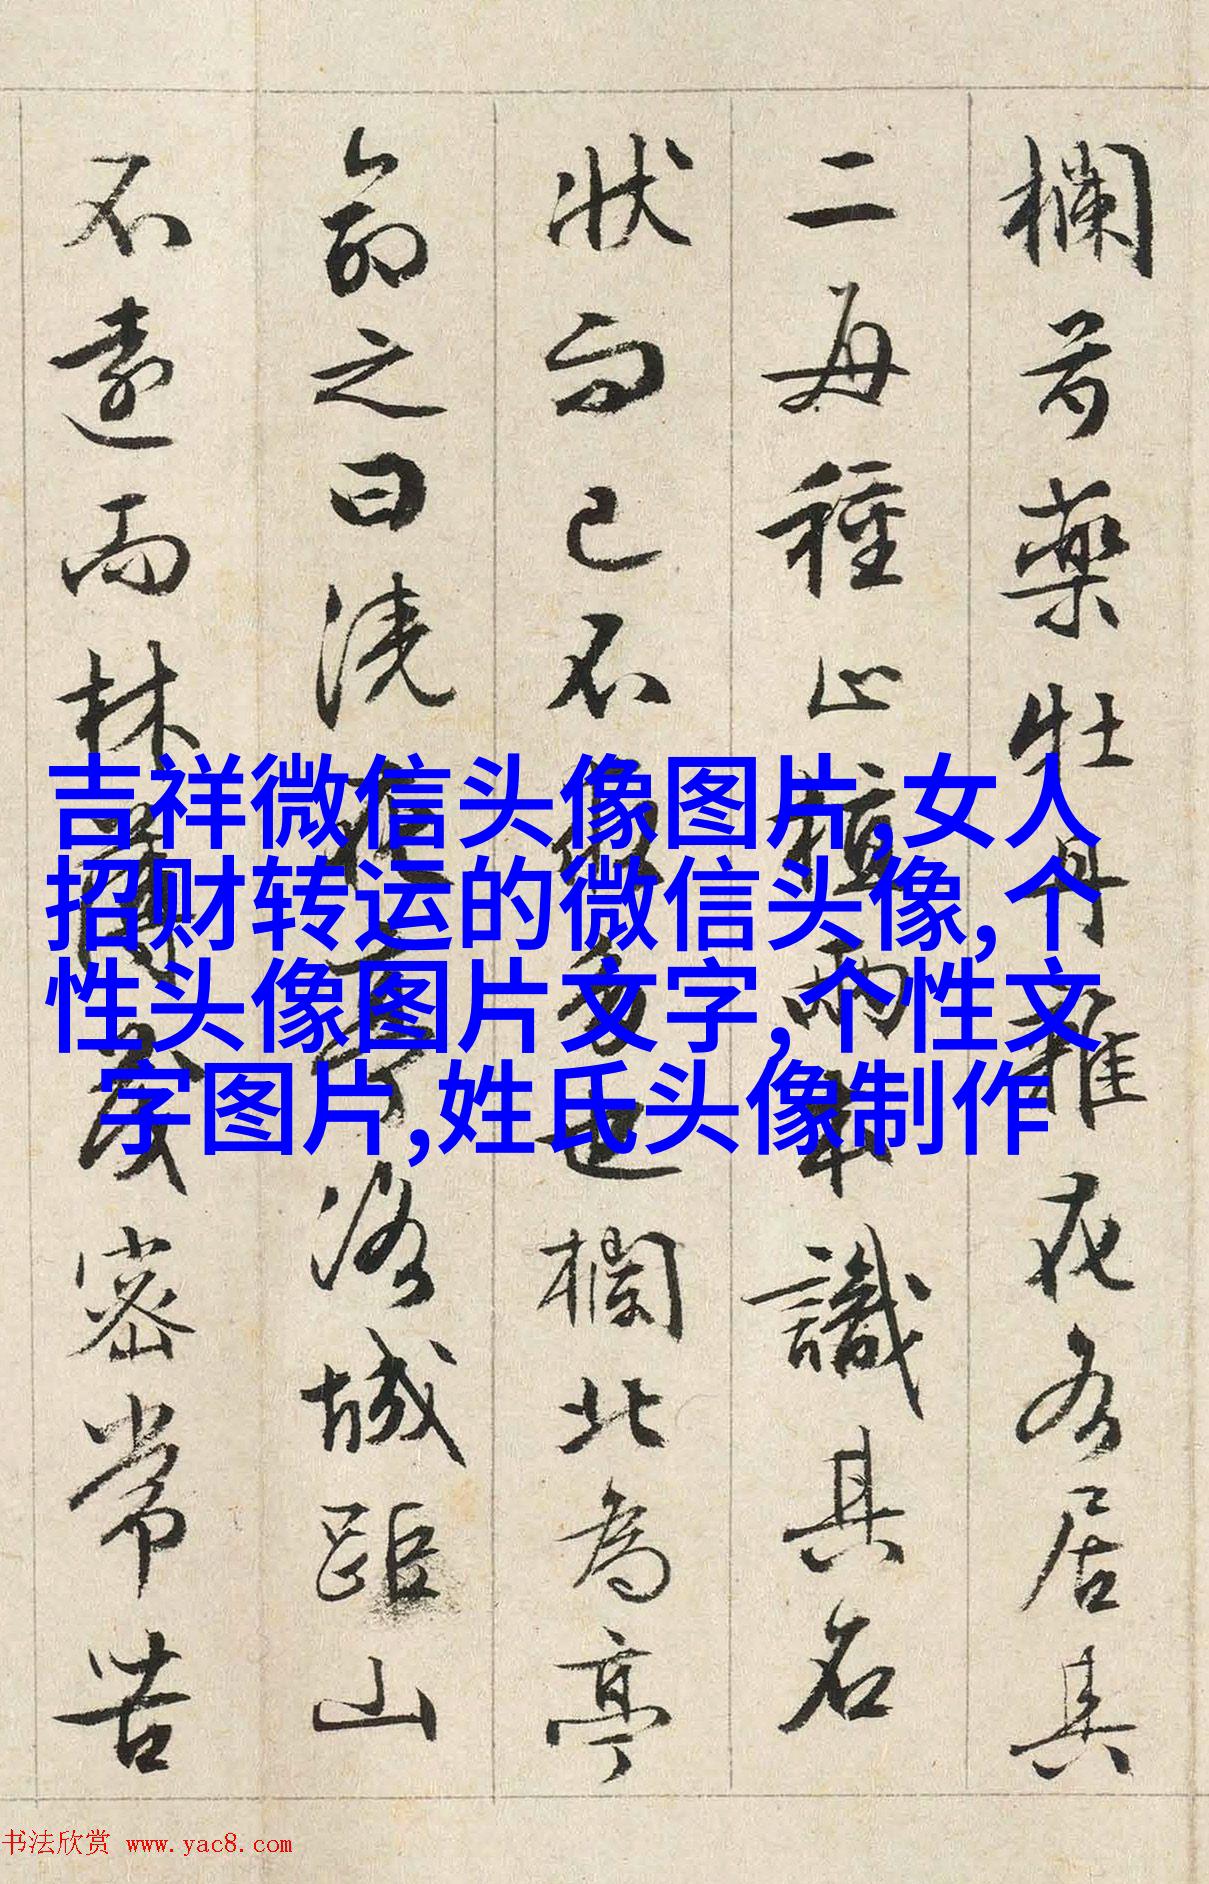 欄芍藥牡丹雜花各居其
二每種止植兩本識其名
狀而已不多也欄北為亭
命之曰澆花亭洛城距山
不遠而林薄茂密常苦
吉祥微信头像图片,女人
招财转运的微信头像,个
性头像图片文字,个性文
字图片,姓氏头像制作
书法欣赏 www.yac8.com